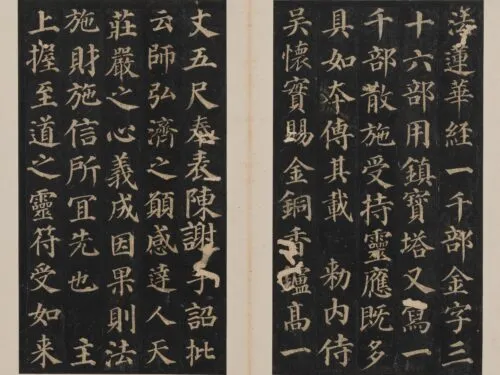 法蓮華經一千部金字三
十六部用鎮寶塔又寫一
千部散施受持靈應既多
具如夲傳其載 勑內侍
吳懷實賜金銅香鑪高一
丈五尺奉表陳謝手詔批
云師弘濟之願感達人天
莊嚴之心義成因果則法
施財施信所冝先也 主
上握至道之靈符受如来